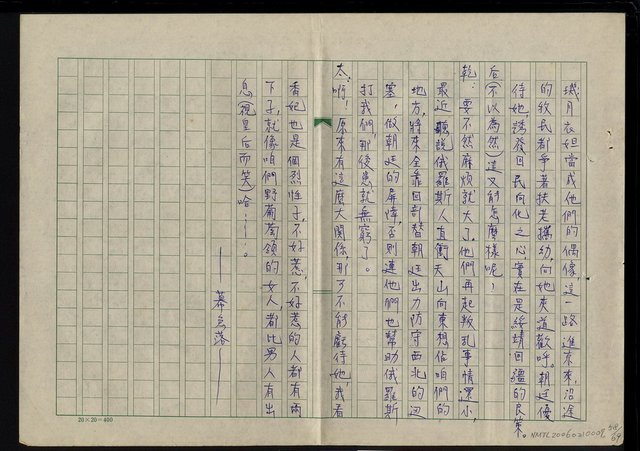 璣月衣妲當成他們的偶像，這一路進來來，沿途
的牧民都爭著扶老攜幼，向她夾道歡呼。朝廷優
待她，誘發回民向化之心，實在是綏靖回疆的良策。
后（不以為然）這又能怎麼樣呢？
乾：要不然麻煩就大了。他們再起叛乱事情還小，
最近聽說俄羅斯人直衝天山向東想佔咱們的
地方，將來全靠回部替朝廷出力防守西北的边
塞，做朝廷的屏幛，否則連他們也幫助俄羅斯
打我們，那後患就無窮了。
太：喲！原來有這麼大関係，那可不能虧待她，我看
香妃也是個烈性子，不好惹，不好惹的人都有両
下子，就像咱們野葡萄領的女人都比男人有出
息（視皇后而笑）哈……。
——幕急落——
20×20=400
NMTL20060210009
69